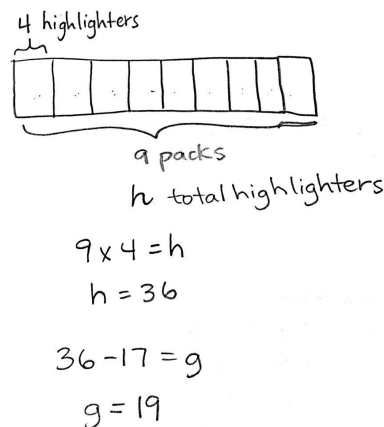 4 highlighters
9 packs
h total highlighters
9 x 4 = h
h = 36
36 - 17 = g
g = 19